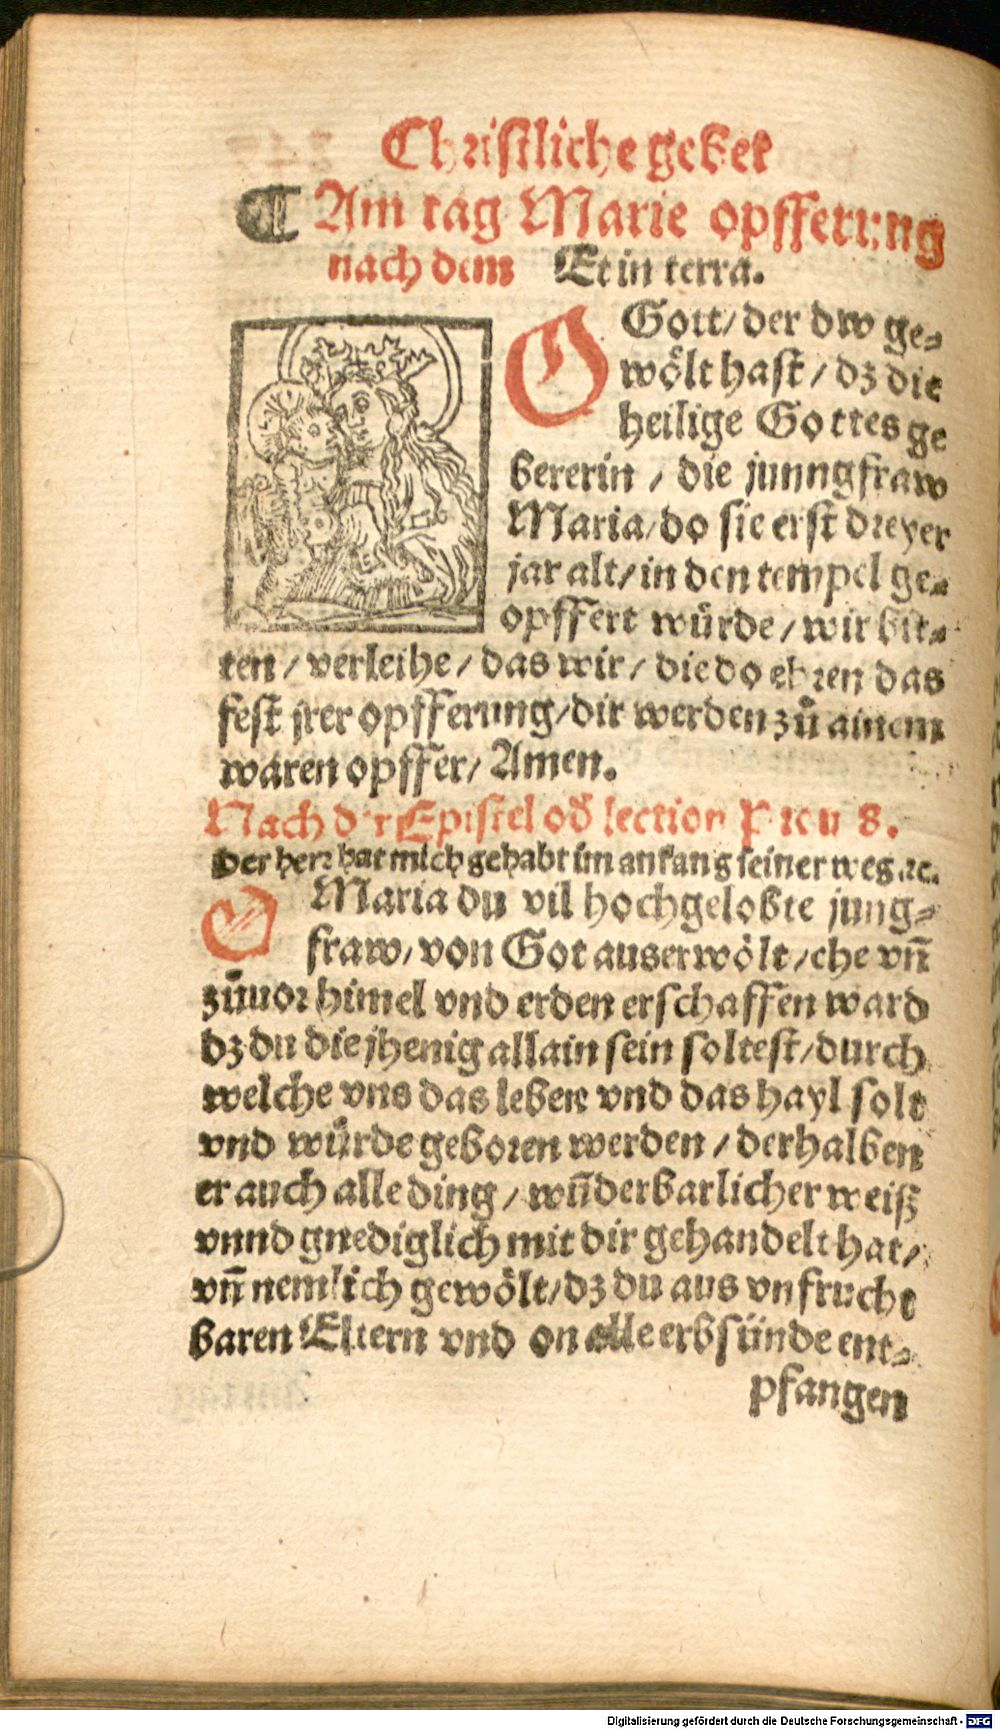 Christliche gebet
¶ Am tag Marie opfferung
nach dem Et in terra.
O Gott/ der dw ge-
wölt hast/ dz die
heilige Gottes ge
bererin / die junngfraw
Maria/ do sie erst dreyer
jar alt/ in den tempel ge-
opffert würde/ wir bit-
ten/ verleihe/ das wir/ die do ehren das
fest jrer opfferung/ dir werden zů ainem
waren opffer/ Amen.
Nach der Epistel oď lection 8.
Der herr hat mich gehabt im anfang seiner weg ꝛc.
O Maria du vil hochgelobte jung-
fraw/ von Got auserwölt/ ehe vn̄
zůuor himel vnd erden erschaffen ward
dz du die jhenig allain sein soltest/ durch
welche vns das leben vnd das hayl solt
vnd würde geboren werden/ derhalben
er auch alle ding/ wun̄derbarlicher weiß
vnnd gnediglich mit dir gehandelt hat/
vn̄ nemlich gewölt/ dz du aus vnfrucht
baren Eltern vnd on alle erbsünde ent-
pfangen
Digitalisierung gefördert durch die Deutsche Forschungsgemeinschaft - DFG